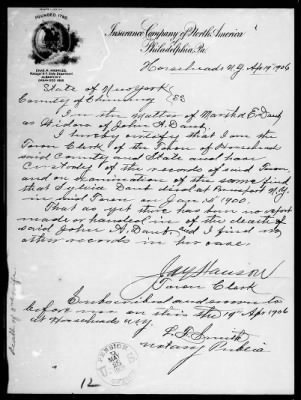 FOUNDED 1792
Insurance Company of North America
Philadelphia, Pa.
Horseheads N.Y. Apr 19" 1906
State of New York
County of Chemung } SS
In the Matter of Martha E. Daub
as Widow of John A. Daub.
I hereby certify that I am the
Town Clerk of the Town of Horseheads
said County and State and have
Custody of the records of said Town
and on examination of the same find
that Sylvia Daub died at Breesport N.Y.
in said Town on Jan 1900.
That as yet there has been no report
made or handed in of the death of
said John A. Daub, and I find no
other records in her case.
Jay Hanson
Town Clerk
Subscribed and sworn to
before me on this the 19th Apr 1906
at Horseheads N.Y.
L. F. Smith
Notary Public
12